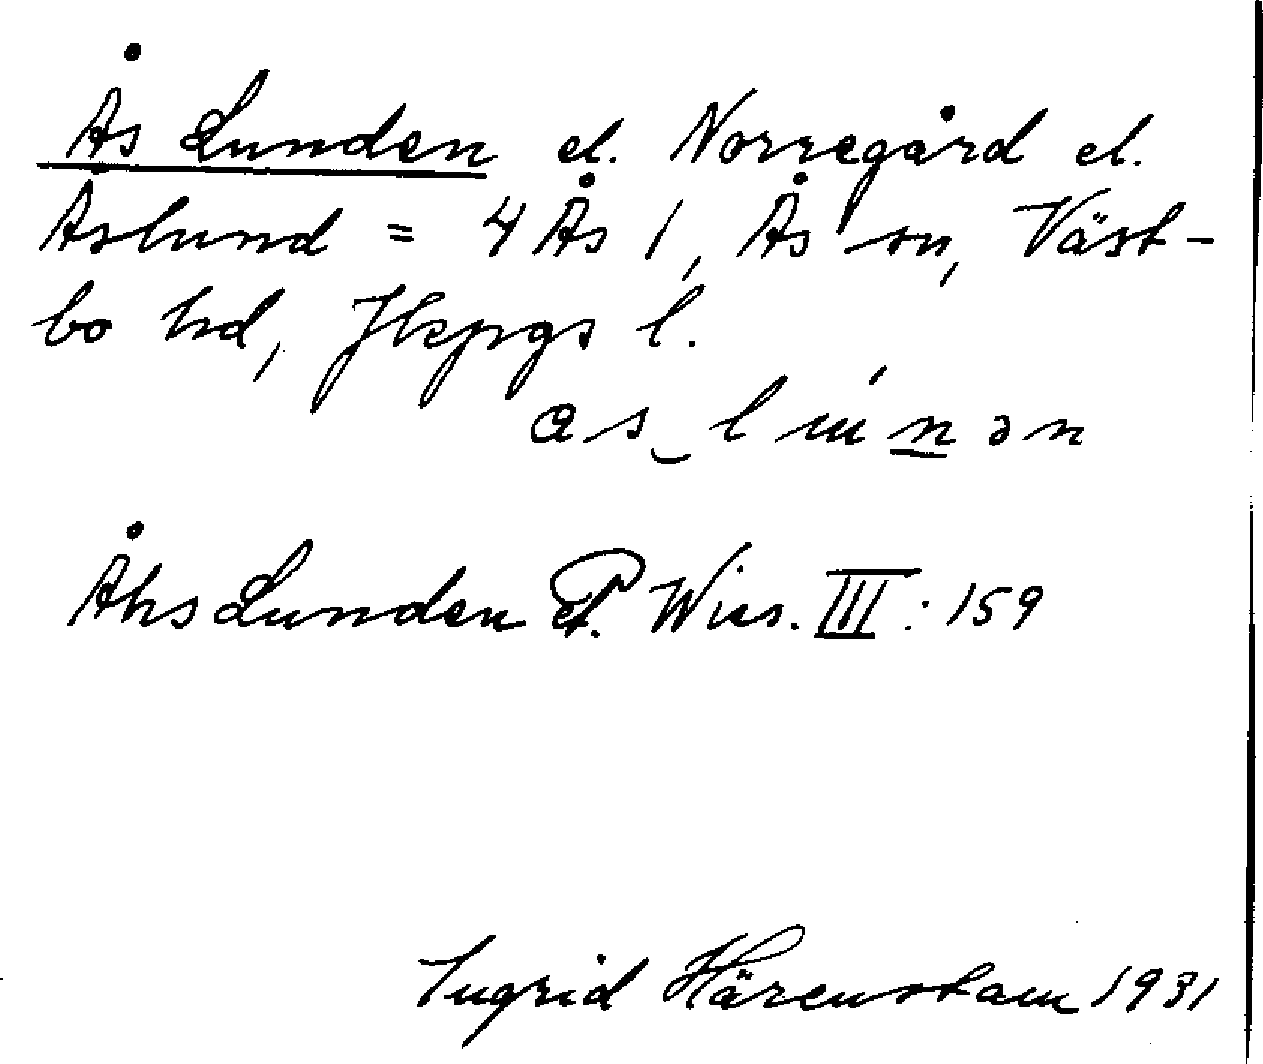 Ås Lunden el. Norregård el.
Åslund = 4 Ås 1, Ås sn, Väst-
bo hd, Jkpgs l.
as lúnən
Åhs Lunden P. Wies. III: 159
Ingrid Härenstam 1931